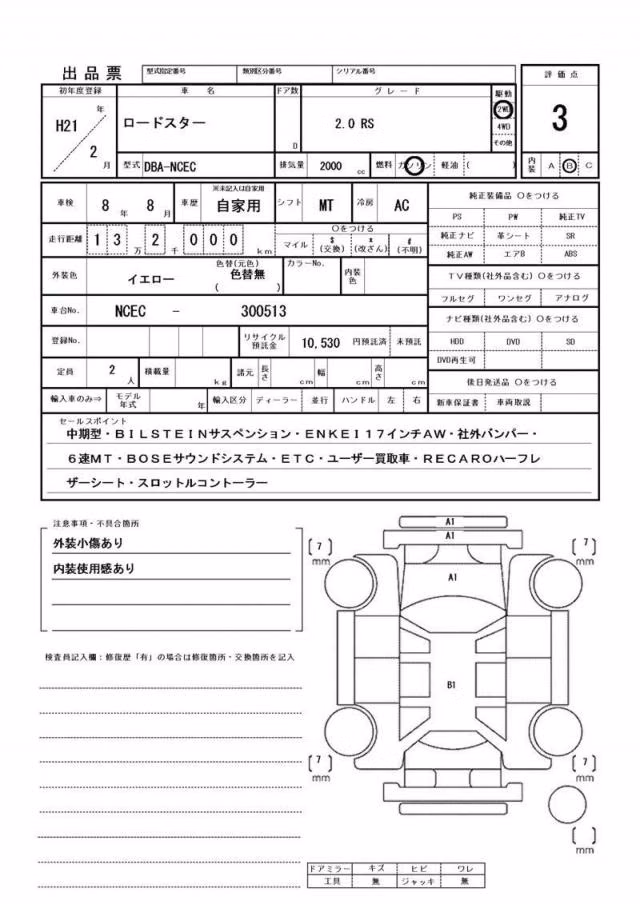 出品票 型式指定番号 類別区分番号 シリアル番号 評価点
初年度登録 車名 ドア数 グレード 駆動
H21 年 ロードスター 2.0 RS 2WD 3
2 月 D 4WD
その他
型式 DBA-NCEC 排気量 2000 cc 燃料 ガソリン 軽油 ( ) 内装 A B C
車検 8 年 8 月 車歴 ※未記入は自家用 自家用 シフト MT 冷房 AC 純正装備品 ○をつける
PS PW 純正TV
走行距離 1 3 万 2 千 0 0 0 km ○をつける
マイル $ (交換) x (改ざん) # (不明)
純正ナビ 革シート SR
純正AW エアB ABS
外装色 イエロー 色替(元色) 色替無 ( ) カラーNo. 内装色
TV種類(社外品含む) ○をつける
フルセグ ワンセグ アナログ
車台No. NCEC - 300513
ナビ種類(社外品含む) ○をつける
登録No. リサイクル預託金 10,530 円預託済 未預託
HDD DVD SD
DVD再生可
定員 2 人 積載量 kg 諸元 長さ cm 幅 cm 高さ cm
後日発送品 ○をつける
輸入車のみ⇒ モデル年式 年 輸入区分 ディーラー 並行 ハンドル 左 右 新車保証書 車両取説
セールスポイント
中期型・BILSTEINサスペンション・ENKEI17インチAW・社外バンパー・
6速MT・BOSEサウンドシステム・ETC・ユーザー買取車・RECAROハーフレ
ザーシート・スロットルコントーラー
注意事項・不具合箇所
外装小傷あり
内装使用感あり
検査員記入欄:修復歴「有」の場合は修復箇所・交換箇所を記入
A1
A1
7 mm 7 mm
A1
B1
7 mm 7 mm
mm
ドアミラー キズ ヒビ ワレ
工具 無 ジャッキ 無